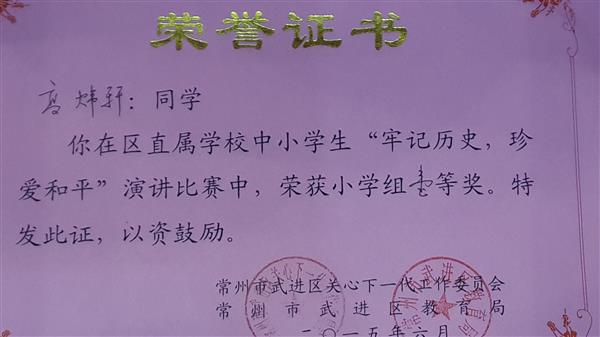 荣誉证书
高炜轩：同学
你在区直属学校中小学生“牢记历史，珍
爱和平”演讲比赛中，荣获小学组壹等奖。特
发此证，以资鼓励。
常州市武进区关心下一代工作委员会
常州市武进区教育局
二〇一五年六月